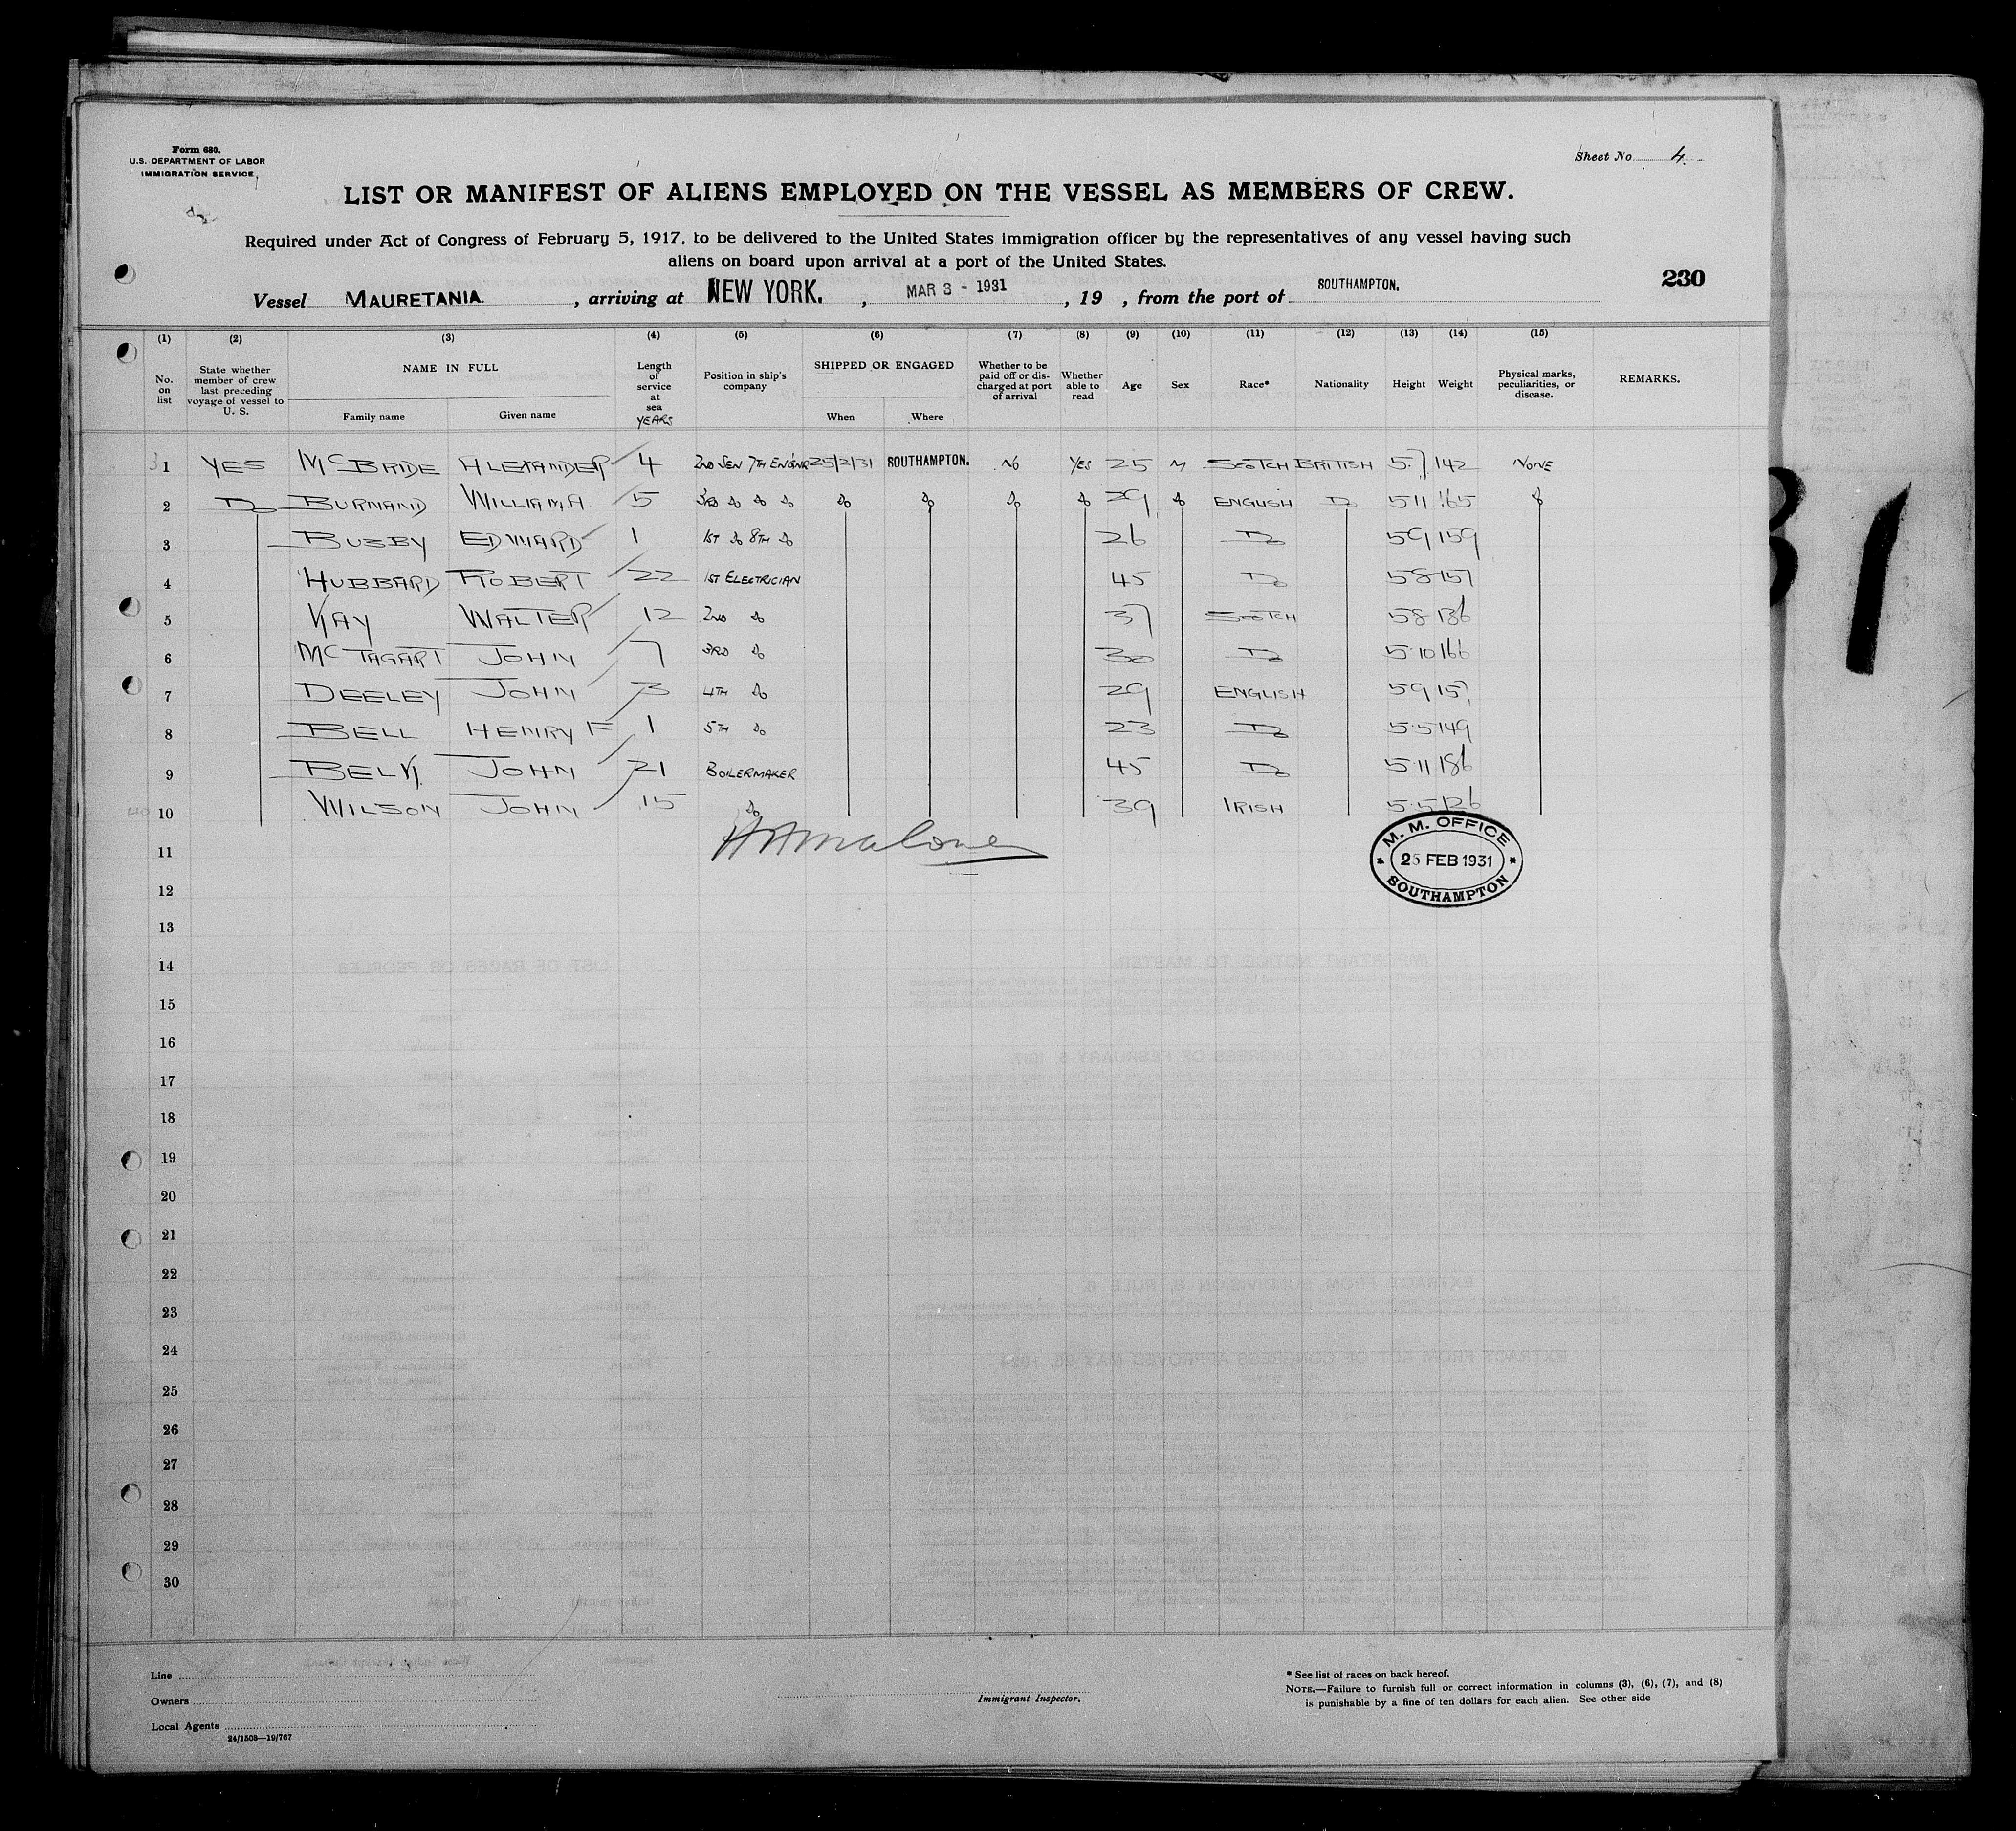 Form 680.
U.S. DEPARTMENT OF LABOR
IMMIGRATION SERVICE
Sheet No 4.
LIST OR MANIFEST OF ALIENS EMPLOYED ON THE VESSEL AS MEMBERS OF CREW.
Required under Act of Congress of February 5, 1917, to be delivered to the United States immigration officer by the representatives of any vessel having such
aliens on board upon arrival at a port of the United States.
230
Vessel MAURETANIA, arriving at NEW YORK., MAR 3 - 1931, 19 , from the port of SOUTHAMPTON.
(1) (2) (3) (4) (5) (6) (7) (8) (9) (10) (11) (12) (13) (14) (15)
No. on list State whether member of crew last preceding voyage of vessel to U. S. NAME IN FULL Family name Given name Length of service at sea YEARS Position in ship's company SHIPPED OR ENGAGED When Where Whether to be paid off or discharged at port of arrival Whether able to read Age Sex Race* Nationality Height Weight Physical marks, peculiarities, or disease. REMARKS.
1 YES McBRIDE ALEXANDER 4 2ND SEN 7TH ENGNR 25/2/31 SOUTHAMPTON. NO YES 25 M SCOTCH BRITISH 5.7 142 NONE
2 Do BURNAND WILLIAM.A. 5 3RD do do do do do do do 29 do ENGLISH Do 5 11 165 do
3 BUSBY EDWARD 1 1ST do 8TH do 26 Do 5 9 159
4 HUBBARD ROBERT 22 1ST ELECTRICIAN 45 Do 5 8 157
5 KAY WALTER 12 2ND do 37 SCOTCH 5 8 186
6 McTAGART JOHN 7 3RD do 30 Do 5.10 166
7 DEELEY JOHN 3 4TH do 29 ENGLISH 5 9 157
8 BELL HENRY F 1 5TH do 23 Do 5.5 149
9 BELK JOHN 21 BOILERMAKER 45 Do 5.11 186
10 WILSON JOHN 15 do 39 IRISH 5.5 126
M. M. OFFICE
25 FEB 1931
SOUTHAMPTON
11
12
13
14
15
16
17
18
19
20
21
22
23
24
25
26
27
28
29
30
Line
Owners
Local Agents
24/1503—19/767
Immigrant Inspector.
* See list of races on back hereof.
NOTE.—Failure to furnish full or correct information in columns (3), (6), (7), and (8)
is punishable by a fine of ten dollars for each alien. See other side